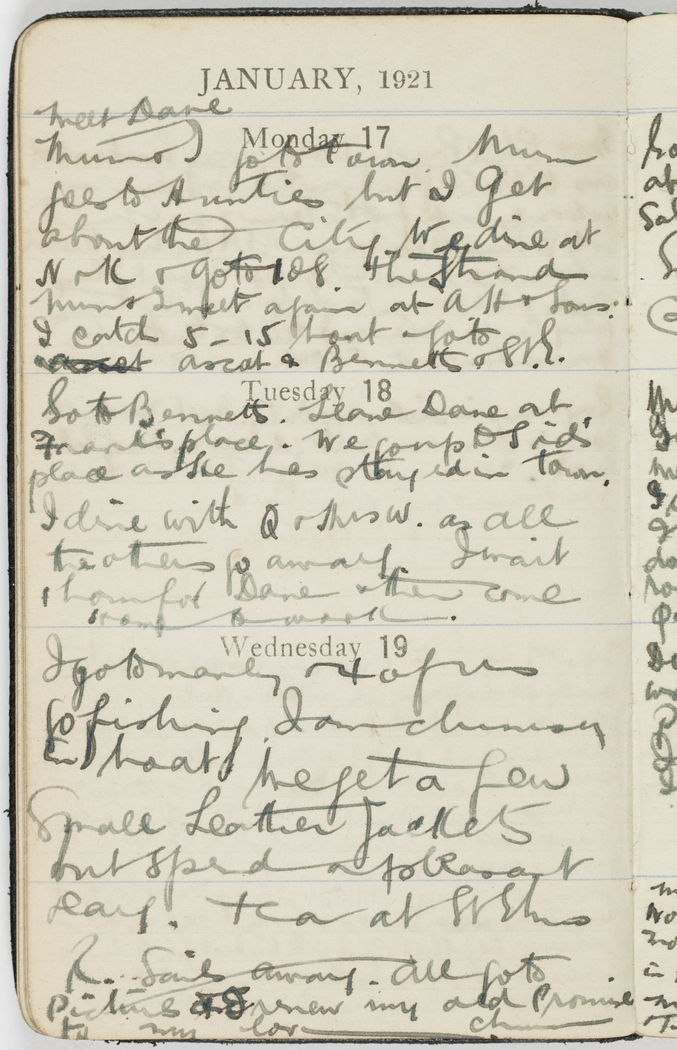 JANUARY, 1921
meet Dane
Monday 17
Mum & I go to town Mum
goes to Aunties but I Get
about the City. We dine at
N & K & go to 108 the Strand
Mum & I meet again at AH & Sons.
I catch 5-15 boat & go to
ascot & Bennetts & St E.
Tuesday 18
Go to Bennetts. Leave Dane at
Frank's place. We go up to Sid's
place as she has stayed in town.
I dine with Q & Mrs W. as all
the others go away. I wait
1 hour for Dane & then come
home to work.
Wednesday 19
I go to manly & 4 of us
go fishing. I am clumsy
in boat, We get a few
Small Leather Jackets
but Spend a pleasant
day. tea at St Elmo
R. Sails away. all go to
Pictures & I renew my old Promise
to my